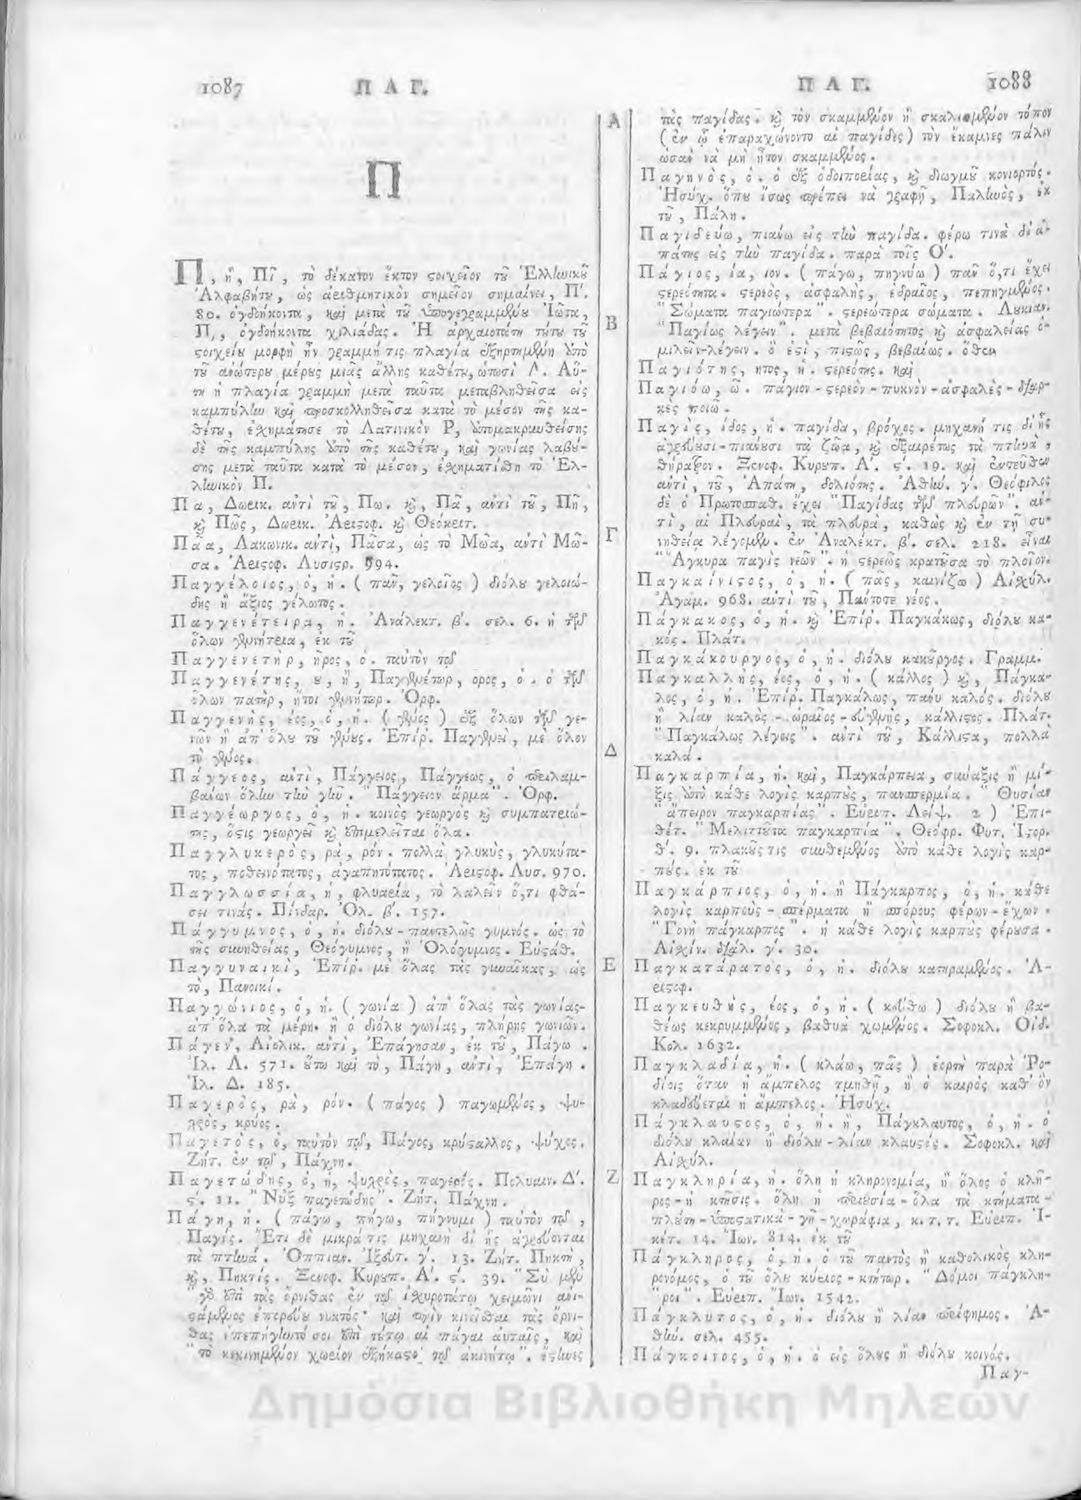 1087 Π Α Γ.
Π
Π, ἡ, Πῖ, τὸ δέκατον ἕκτον ςοιχεῖον τοῦ Ἑλλωικοῦ
Ἀλφαβήτου, ὡς ἀριθμητικὸν σημεῖον σημαίνει, Π΄.
80. ὀγδοήκοντα, καὶ μετὰ τοῦ ὑπογεγραμμένου Ἰῶτα,
Π͵, ὀγδοήκοντα χιλιάδας. Ἡ ἀρχαιοτάτη τούτου τοῦ
ςοιχείου μορφὴ ἦν γραμμή τις πλαγία ἐξηρτημένη ἀπὸ
τοῦ ἀνωτέρου μέρους μιᾶς ἄλλης καθέτου, ὡπωσὶ Λ. Αὕ-
τη ἡ πλαγία γραμμὴ μετὰ ταῦτα μεταβληθεῖσα εἰς
καμπύλην καὶ προσκολληθεῖσα κατὰ τὸ μέσον τῆς κα-
θέτου, ἐσχημάτισε τὸ Λατινικὸν P, ἀπομακρυνθείσης
δὲ τῆς καμπύλης ἀπὸ τῆς καθέτου, καὶ γωνίας λαβού-
σης μετὰ ταῦτα κατὰ τὸ μέσον, ἐσχηματίσθη τὸ Ἑλ-
ληνικὸν Π.
Πα, Δωρικ. ἀντὶ τοῦ, Πω. καὶ, Πᾶ, ἀντὶ τοῦ, Πῆ,
καὶ Πῶς, Δωρικ. Ἀριςοφ. καὶ Θεόκριτ.
Πάα, Λακωνικ. ἀντὶ, Πᾶσα, ὡς τὸ Μῶα, ἀντὶ Μῶ-
σα. Ἀριςοφ. Λυσιςρ. 994.
Παγγέλοιος, ὁ, ἡ. (πᾶν, γελοῖος) διόλου γελοιώ-
δης ἢ ἄξιος γέλωτος.
Παγγενέτειρα, ἡ. Ἀνάλεκτ. β΄. σελ. 6. ἡ τῶν
ὅλων γεννήτρια, ἐκ τοῦ
Παγγενέτηρ, ῆρος, ὁ. ταὐτὸν τῷ
Παγγενέτης, ου, ἢ, Παγγενέτωρ, ορος, ὁ. ὁ τῶν
ὅλων πατὴρ, ἤτοι γεννήτωρ. Ὀρφ.
Παγγενής, έος, ὁ, ἡ. (γένος) ἐξ ὅλων τῶν γε-
νῶν ἢ ἀπ' ὅλου τοῦ γένους. Ἐπίρ. Παγγενεὶ, μὲ ὅλον
τὸ γένος.
Πάγγεος, ἀντὶ, Πάγγειος, Πάγγεως, ὁ περιλαμ-
βαίνων ὅλην τὴν γῆν. "Πάγγειον ἅρμα". Ὀρφ.
Παγγέωργος, ὁ, ἡ. κοινὸς γεωργὸς καὶ συμπατριώ-
της, ὅςις γεωργεῖ καὶ ἐπιμελεῖται ὅλα.
Παγγλυκερὸς, ρὰ, ρόν. πολλὰ γλυκὺς, γλυκύτα-
τος, ποθεινότατος, ἀγαπητότατος. Ἀριςοφ. Λυσ. 970.
Παγγλωσσία, ἡ, φλυαρία, τὸ λαλεῖν ὅ,τι φθά-
σει τινάς. Πίνδαρ. Ὀλ. β΄. 157.
Πάγγυμνος, ὁ, ἡ. διόλου-παντελῶς γυμνός. ὡς τὸ
τῆς συνηθείας, Θεόγυμνος, ἢ Ὁλόγυμνος. Εὐςάθ.
Παγγυναικὶ, Ἐπίρ. μὲ ὅλας τὰς γυναῖκας, ὡς
τὸ, Πανοικί.
Παγγώνιος, ὁ, ἡ. (γωνία) ἀπ' ὅλας τὰς γωνίας-
ἀπ' ὅλα τὰ μέρη. ἢ ὁ διόλου γωνίας, πλήρης γωνιῶν.
Πάγεν, Αἰολικ. ἀντὶ, Ἐπάγησαν, ἐκ τοῦ, Πάγω.
Ἰλ. Λ. 571. οὕτω καὶ τὸ, Πάγη, ἀντὶ, Ἐπάγη.
Ἰλ. Δ. 185.
Παγερὸς, ρὰ, ρόν. (πάγος) παγωμένος, ψυ-
χρὸς, κρύος.
Παγετὸς, ὁ, ταὐτὸν τῷ, Πάγος, κρύςαλλος, ψύχος.
Ζήτ. ἐν τῷ, Πάχνη.
Παγετώδης, ὁ, ἡ, ψυχρὸς, παγερός. Πολυαιν. Δ΄.
ς΄. 11. "Νὺξ παγετώδης". Ζήτ. Πάχνη.
Πάγη, ἡ. (πάγω, πήγω, πήγνυμι) ταὐτὸν τῷ,
Παγίς. Ἔτι δὲ μικρά τις μηχανὴ δι' ἧς ἀγρεύονται
τὰ πτηνά. Ὀππιαν. Ἰξευτ. γ΄. 13. Ζήτ. Πηκτὴ,
καὶ, Πηκτίς. Ξενοφ. Κυρουπ. Α΄. ς΄. 39. "Σὺ μὲν
"γὰρ ἐπὶ τὰς ὄρνιθας ἐν τῷ ἰσχυροτάτῳ χειμῶνι ἀνι-
"ςάμενος ἐπορεύου νυκτός· καὶ πρὶν κινεῖσθαι τὰς ὄρνι-
"θας ἐπεπήγηντό σοι ἐπὶ τούτῳ αἱ πάγαι αὐταῖς, καὶ
"τὸ κεκινημένον χωρίον ἐξῄκαςο τῷ ἀκινήτῳ".
Α
Β
Γ
Δ
Ε
Ζ
Π Α Γ. 1088
τὰς παγίδας. καὶ τὸν σκαμμένον ἢ σκαλισμένον τόπον
(ἐν ᾧ ἐπαραχώνοντο αἱ παγίδες) τὸν ἔκαμνες πάλιν
ὡσὰν νὰ μὴ ἦτον σκαμμένος.
Παγηνὸς, ὁ. ὁ ἐξ ὁδοιπορίας, καὶ διωγμοῦ κονιορτός.
Ἡσύχ. ὅπου ἴσως πρέπει νὰ γραφῇ, Παληνὸς, ἐκ
τοῦ, Πάλη.
Παγιδεύω, πιάνω εἰς τὴν παγίδα. φέρω τινὰ δι' ἀ-
πάτης εἰς τὴν παγίδα. παρὰ τοῖς Ο΄.
Πάγιος, ία, ιον. (πάγω, πηγνύω) πᾶν ὅ,τι ἔχει
ςερεότητα. ςερεὸς, ἀσφαλής, ἑδραῖος, πεπηγμένος.
"Σώματα παγιώτερα". ςερεώτερα σώματα. Λουκιαν.
"Παγίως λέγειν". μετὰ βεβαιότητος καὶ ἀσφαλείας ὁ-
μιλεῖν-λέγειν. ὅ ἐςὶ, πιςῶς, βεβαίως. ὅθεν
Παγιότης, ητος, ἡ. ςερεότης. καὶ
Παγιόω, ῶ. πάγιον-ςερεὸν-πυκνὸν-ἀσφαλὲς-διαρ-
κὲς ποιῶ.
Παγὶς, ίδος, ἡ. παγίδα, βρόχος. μηχανή τις δι' ἧς
ἀγρεύουσι-πιάνουσι τὰ ζῶα, καὶ ἐξαιρέτως τὰ πτηνά,
θήρατρον. Ξενοφ. Κυρουπ. Α΄. ς΄. 19. καὶ ἐντεῦθεν
ἀντὶ, τοῦ, Ἀπάτη, δολιότης. Ἀθην. γ΄. Θεόφιλος
δὲ ὁ Πρωτοσπαθ. ἔχει "Παγίδας τῶν πλευρῶν". ἀν-
τὶ, αἱ Πλευραὶ, τὰ πλευρὰ, καθὼς καὶ ἐν τῇ συ-
νηθείᾳ λέγομεν. ἐν Ἀναλέκτ. β΄. σελ. 218. εἶναι
"Ἄγκυρα παγὶς νεῶν". ἡ ςερεῶς κρατοῦσα τὸ πλοῖον.
Παγκαίνιςος, ὁ, ἡ. (πᾶς, καινίζω) Αἰσχύλ.
Ἀγαμ. 968. ἀντὶ τοῦ, Πάντοτε νέος.
Πάγκακος, ὁ, ἡ. καὶ Ἐπίρ. Παγκάκως, διόλου κα-
κός. Πλάτ.
Παγκάκουργος, ὁ, ἡ. διόλου κακοῦργος. Γραμμ.
Παγκαλλὴς, έος, ὁ, ἡ. (κάλλος) καὶ, Πάγκα-
λος, ὁ, ἡ. Ἐπίρ. Παγκάλως, πάνυ καλός. διόλου
ἢ λίαν καλὸς-ὡραῖος-εὐγενὴς, κάλλιςος. Πλάτ.
"Παγκάλως λέγεις". ἀντὶ τοῦ, Κάλλιςα, πολλὰ
καλά.
Παγκαρπία, ἡ. καὶ, Παγκάρπεια, σύναξις ἢ μί-
ξις ἀπὸ κάθε λογῆς καρποὺς, πανσπερμία. "Θυσίαν
"ἄπειρον παγκαρπίας". Εὐριπ. Λείψ. 2) Ἐπι-
θέτ. "Μελιττοῦτα παγκαρπία". Θεόφρ. Φυτ. Ἱςορ.
θ΄. 9. πλακοῦς τις συνθεμένος ἀπὸ κάθε λογῆς καρ-
πούς. ἐκ τοῦ
Παγκάρπιος, ὁ, ἡ. ἢ Πάγκαρπος, ὁ, ἡ. κάθε
λογῆς καρποὺς-σπέρματα ἢ σπόρους φέρων-ἔχων.
"Γονὴ πάγκαρπος". ἡ κάθε λογῆς καρποὺς φέρουσα.
Αἰσχίν. διάλ. γ΄. 30.
Παγκατάρατος, ὁ, ἡ. διόλου καταραμένος. Ἀ-
ριςοφ.
Παγκευθὴς, έος, ὁ, ἡ. (κεύθω) διόλου ἢ βα-
θέως κεκρυμμένος, βαθυὰ χωμένος. Σοφοκλ. Οἰδ.
Κολ. 1632.
Παγκλαδία, ἡ. (κλάω, πᾶς) ἑορτὴ παρὰ Ῥο-
δίοις ὅταν ἡ ἄμπελος τμηθῇ, ἢ ὁ καιρὸς καθ' ὃν
κλαδεύεται ἡ ἄμπελος. Ἡσύχ.
Πάγκλαυςος, ὁ, ἡ. ἢ, Πάγκλαυτος, ὁ, ἡ. ὁ
διόλου κλαίων ἢ διόλου-λίαν κλαυςός. Σοφοκλ. καὶ
Αἰσχύλ.
Παγκληρία, ἡ. ὅλη ἡ κληρονομία, ἢ ὅλος ὁ κλῆ-
ρος-ἡ κτῆσις. ὅλη ἡ περιουσία-ὅλα τὰ κτήματα-
πλούτη-ὑποςατικὰ-γῆ-χωράφια, κ. τ. τ. Εὐριπ. Ἱ-
κέτ. 14. Ἴων. 814. ἐκ τοῦ
Πάγκληρος, ὁ, ἡ. ὁ τοῦ παντὸς ἢ καθολικὸς κλη-
ρονόμος, ὁ τοῦ ὅλου κύριος-κτήτωρ. "Δόμοι πάγκλη-
"ροι". Εὐριπ. Ἴων. 1542.
Πάγκλυτος, ὁ, ἡ. διόλου ἢ λίαν περίφημος. Ἀ-
θήν. σελ. 455.
Πάγκοινος, ὁ, ἡ. ὁ εἰς ὅλους ἢ διόλου κοινός.
Παγ-
Δημόσια Βιβλιοθήκη Μηλεών